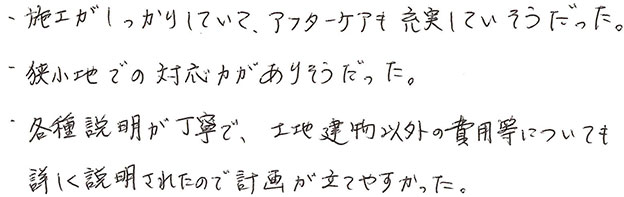 ・施工がしっかりしていて、アフターケアも充実していそうだった。
・狭小地での対応力がありそうだった。
・各種説明が丁寧で、土地建物以外の費用等についても
詳しく説明されたので計画が立てやすかった。